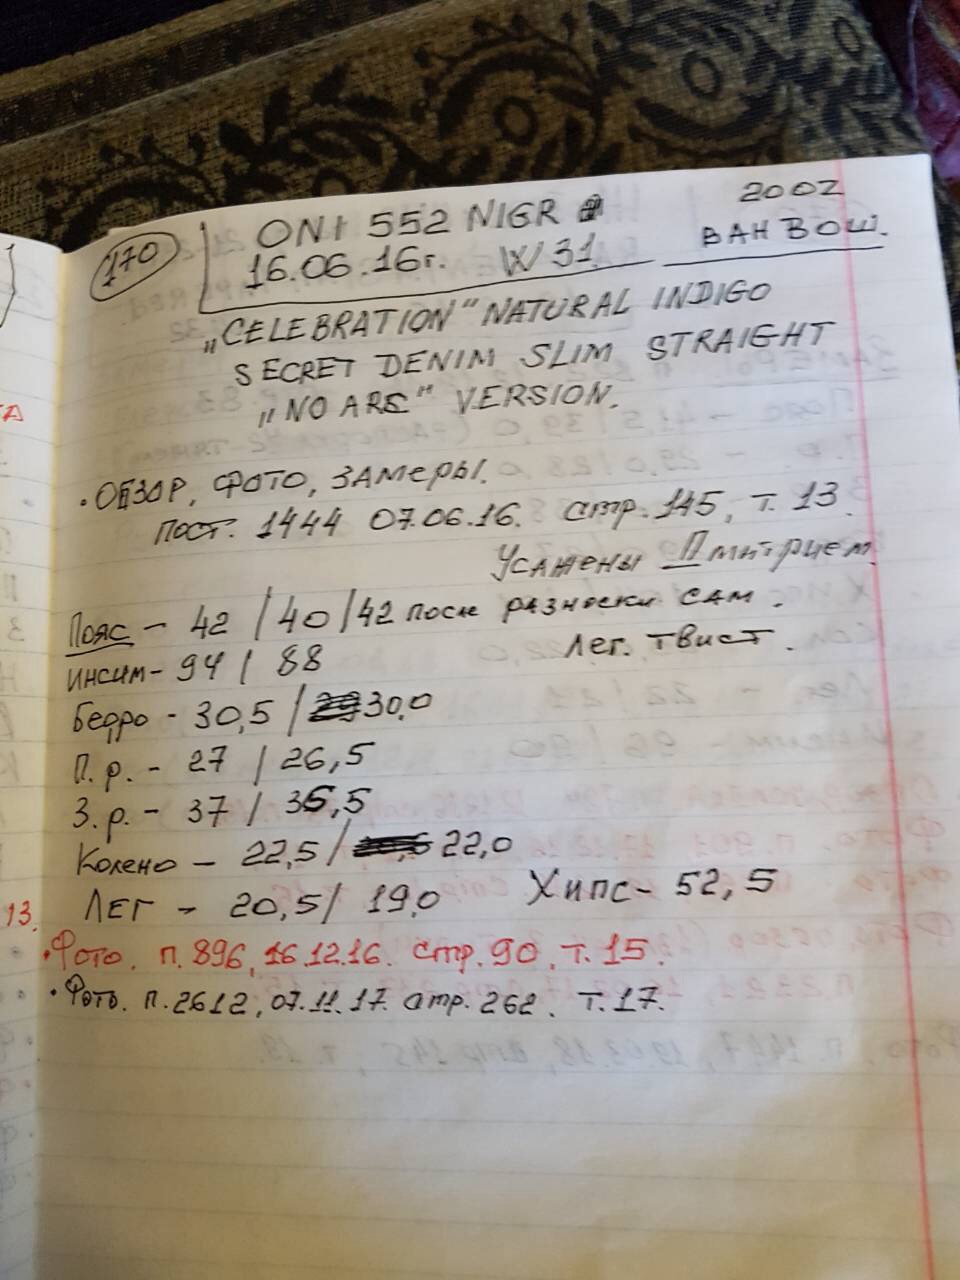 170
ONI 552 NIGR
2002
16.06.16г. W 31.
ВАН ВОШ.
„CELEBRATION" NATURAL INDIGO
SECRET DENIM SLIM STRAIGHT
„NO ARC" VERSION.
• ОБЗОР, ФОТО, ЗАМЕРЫ.
ПОСТ. 1444 07.06.16. стр. 145, т. 13.
Усажены Дмитрием
Пояс - 42 / 40 / 42 после разноски сам.
ИНСИМ - 94 / 88
Лег. твист.
Бедро - 30,5 / 30,0
П.р. - 27 / 26,5
З.р. - 37 / 36,5
Колено - 22,5 / 22,0
ЛЕГ - 20,5 / 19,0
Хипс - 52,5
13.
• Фото. п. 896, 16.12.16. стр. 90, т. 15.
• Фото. п. 2612, 07.11.17. стр. 262. т. 17.